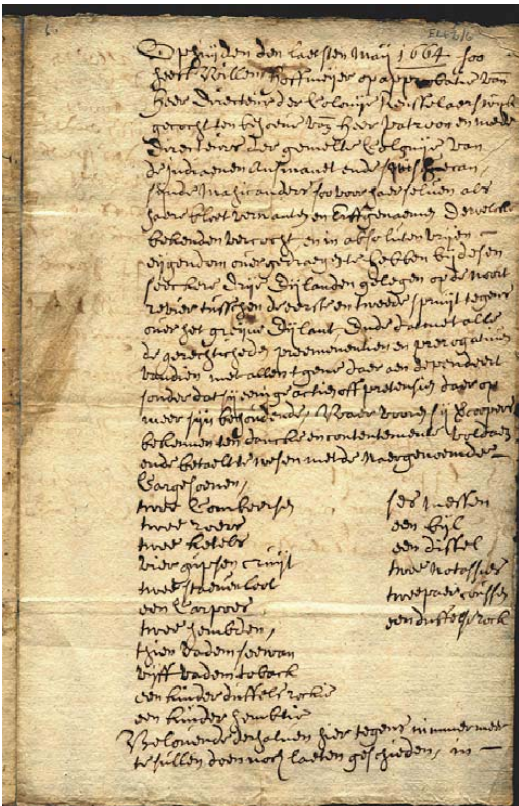 Op huijden den laesten Maij 1664 soo
heeft Willem Hoffmeijer op approbatie van
Heer Directeur der Colonije Renselaerswijck
gecocht ten behoeve van Heer Patroon en mede
directeurs der gemelte Colonije van
de Indiaenen ende
sijnde Mahicanders soo voor haer selven als
haere bloet verwanten en Erffgenaemen Dewelcke
bekenden vercocht en in absoluten vrijen
eijgendom overgedraegen te hebben bij desen
seeckere drije Eijlanden gelegen op de noort
revier tusschen de eerste en tweede spruijt tegens
over het greijne Eijlant Ende dat met alle
de gerechticheden preeminentien en prerogativen
van dien met allen tgene daer aen dependeert
sonder dat sij eenige actien off pretensien daer op
meer sijn behoudende, Waer vooren sij
bekennen ten dancke en contentemente voldaen
ende betaelt te wesen met de Naergenoemde
Cargesoenen,
twee Combeersen
twee roers
twee ketels
vier cruijt
twee staeven loot
een
twee hembden,
thien vadem seewan
vijff vadem toback
een kinder duffels rockie
een kinder hembtie
ses messen
een bijl
een dissel
twee
twee paer coussen
een duffels rock
Belovende derhalven hier tegens nimmermeer
te sullen doen noch laeten geschieden, in